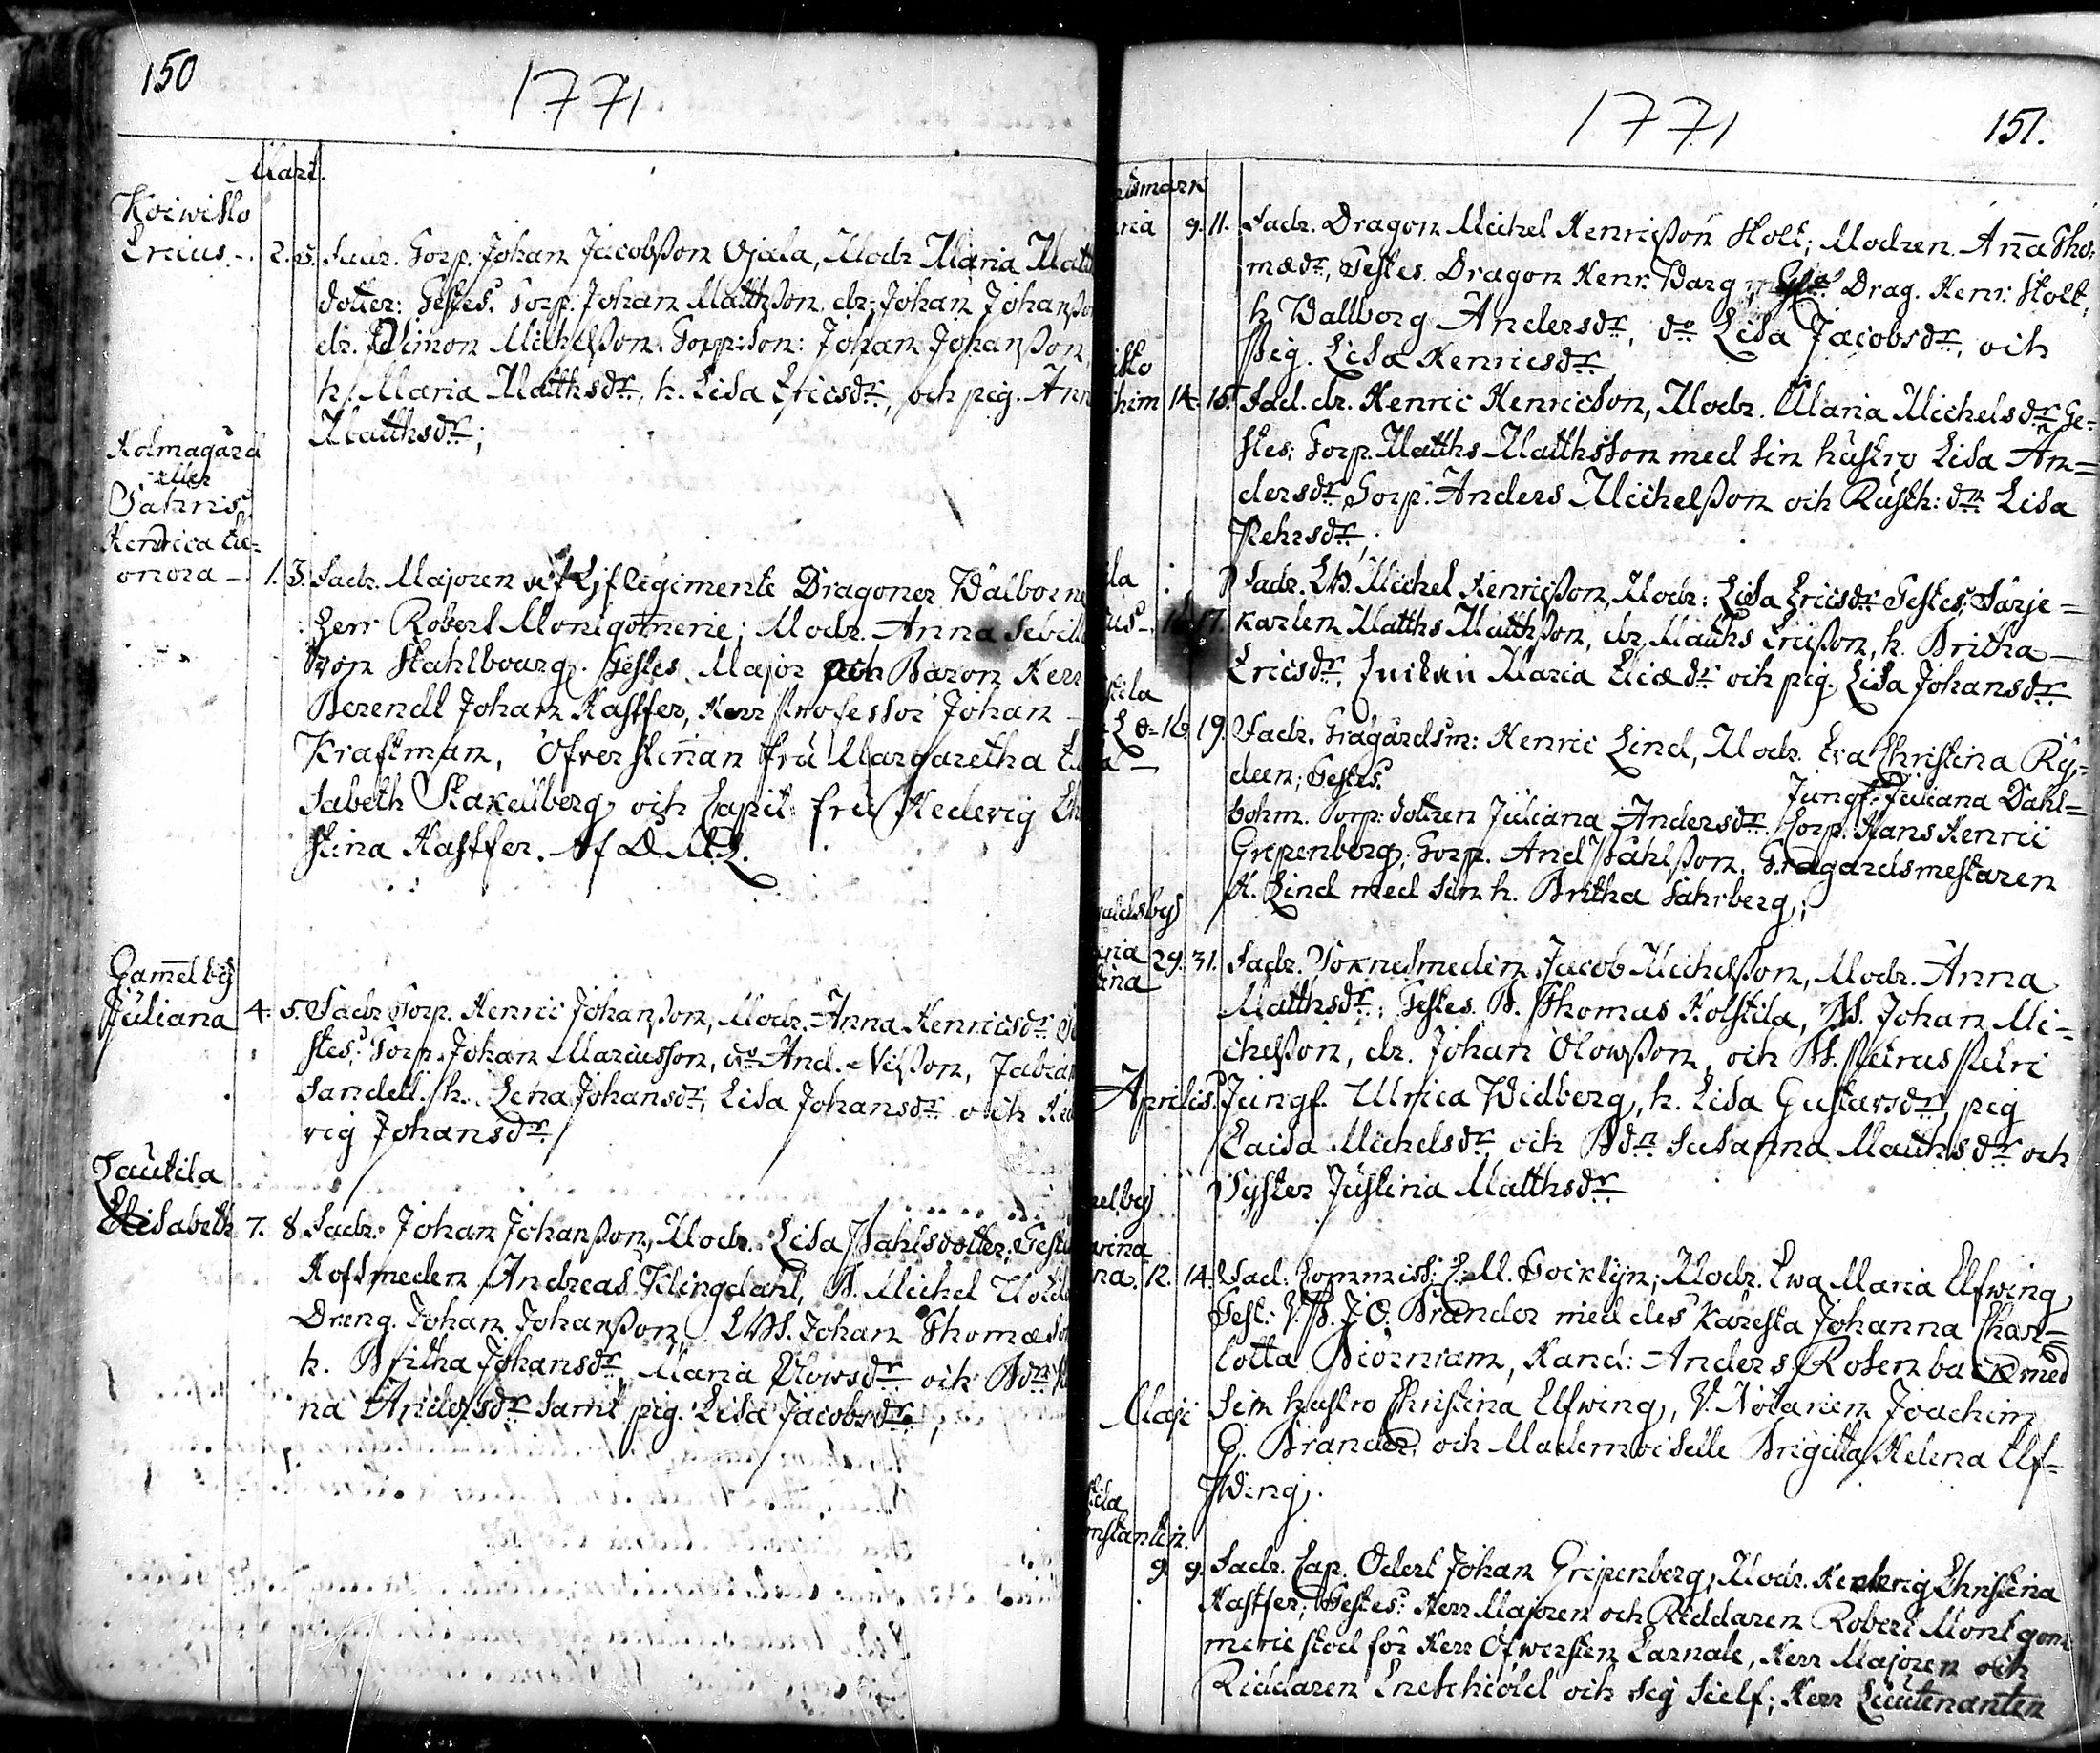 150
1771
Mart.
Koiwisto
Ericus - 2. 5. Fadr. Torp. Johan Jacobsson Ojala, Modr Maria Matt
dotter: Testes. Torp. Johan Matthsson, dr. Johan Johansson
dr. Simon Michelsson. Torp: Son: Johan Johansson,
h. Maria Matthsdr, h. Lisa Ericsdr, och pig. Ann
Matthsdr;
Holmagård
eller
Sahris
Henrica Ele=
onora - 1. 3. Fadr. Majoren af Lif Regimente Dragoner Wälborne
Herr Robert Montgomerie; Modr. Anna Sebill
von Stahlbourg. Testes. Major och Baron Herr
Berendt Johan Hastfer, Herr Professor Johan -
Kraftman, Öfverstinnan fru Margaretha El
sabeth Stakelberg och Capit: fru Hedevig Ch
stina Hastfer. Af D. M. L.
Gamelby
Juliana 4. 5. Fadr Torp. Henric Johansson, Modr. Anna Henricsdr Te
stes: Torp. Johan Marcusson, do And. Nilsson, Fabian
Sandell. h. Lena Johansdr, Lisa Johansdr och He
vig Johansdr
Tautila
Elisabeth 7. 8 Fadr. Johan Johansson, Modr. Lisa Påhlsdotter, Test
Hofsmeden Andreas Klingdahl, B. Michel
Dreng. Johan Johansson. LBS. Johan Thomæ
h. Britha Johansdr, Maria Olowsdr och Bdr
na Andersdr samt pig. Lisa Jacobsdr,
1771
151.
usmark
ria 9. 11. Fadr. Dragon Michel Henricsson Stolt; Modren. Anna Tho:
mædr, Testes. Dragon Henr. Warg, Drag. Henr. Stolt,
h. Wallborg Andersdr, do Lisa Jacobsdr, och
Pig. Lisa Henricsdr
isto
him 14. 15. Fad. dr. Henric Henricson, Modr. Maria Michelsdr Te=
stes: Torp. Matths Matthsson med sin hustro Lisa An=
dersdr, Torp. Anders Michelsson och Rusth: dr. Lisa
Pehrsdr,
ila
us- 17. Fadr. LB. Michel Henricsson, Modr: Lisa Ericsdr Testes: Färje=
karlen Matths Matthsson, dr. Matths Ericsson, h. Britha -
Ericsdr, Enikan Maria Eliædr och pig. Lisa Johansdr
tila
16. 19. Fadr. Trägårdsm: Henric Lind, Modr. Eva Christina Ry=
deen; Testes. Jungf: Juliana Dahl=
bohm. Torp: dottren Juliana Andersdr. Corp. Hans Henric
Gripenberg; Torp. And Påhlsson, Trägårdsmestaren
H. Lind med sin h. Britha Sahrberg;
aldsby
ria
tina 29. 31. Fadr. Soknesmeden Jacob Michelsson, Modr. Anna
Matthsdr; Testes. B. Thomas Holstila, B. Johan Mi=
chelsson, dr. Johan Olowsson, och B. Petrus Petri
Aprilis. Jungf. Ulrica Widberg, h. Lisa Gustavsdr, pig
Caisa Michelsdr och Bdr Susanna Matthsdr och
Syster Justina Matthsdr
elby
arina
na. 12. 14. Fad. Commiss: C. M. Tocklijn; Modr. Ewa Maria Elfwing
Test: V. P. J. O. Brander med des käresta Johanna Char=
lotta Biörnram, Hand: Anders Rosenback med
Maji sin hustro Christina Elfwing, V. Notarien Joachim
G. Brander, och Mademoiselle Brigitta Helena Elf=
Wing.
tila
onstantin.
9. 9. Fadr. Cap. Odert Johan Gripenberg, Modr. Hedvig Christina
Hastfer; Testes: Herr Majoren och Riddaren Robert Montgom
merie stod för Herr Öfwersten Carnale, Herr Majoren och
Riddaren Enekhiöld och sig sielf; Herr Lieutenanten